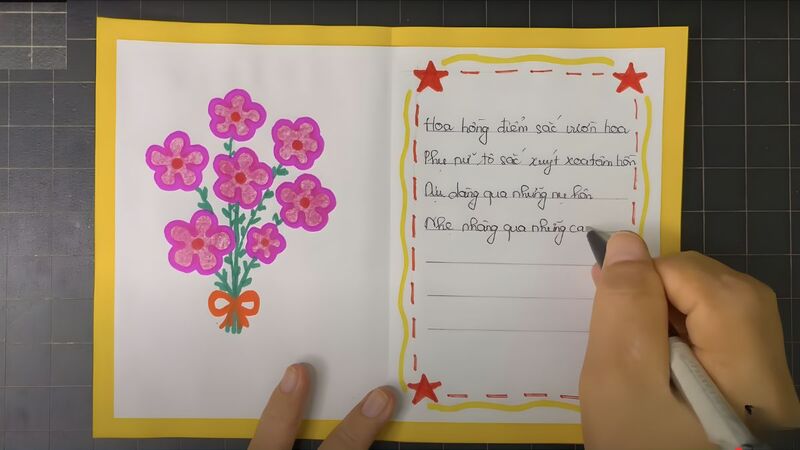 Hoa hồng điểm sắc vườn hoa
Phụ nữ tô sắc xuýt xoa tâm hồn
Dịu dàng qua những nụ hôn
Nhẹ nhàng qua những ca